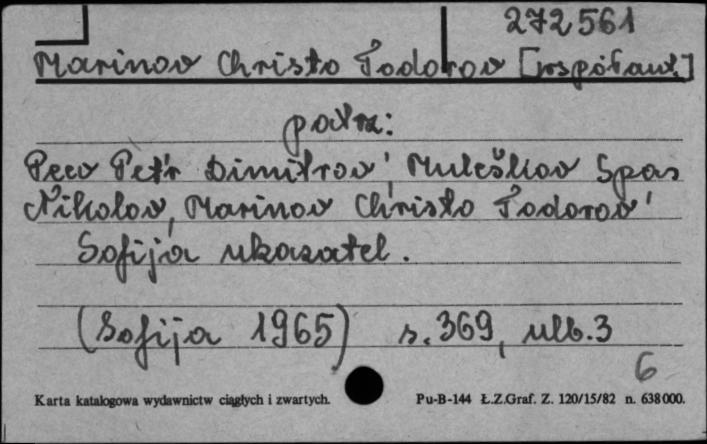 272561
Marinov Christo Todorov [współaut.]
patrz:
Peev Pet'r Dimitrov, Muleškov Spas
Nikolov, Marinov Christo Todorov
Sofija ukazatel.
(Sofija 1965) s. 369, nlb. 3
6
Karta katalogowa wydawnictw ciągłych i zwartych.
Pu-B-144 Ł.Z.Graf. Z. 120/15/82 n. 638000.